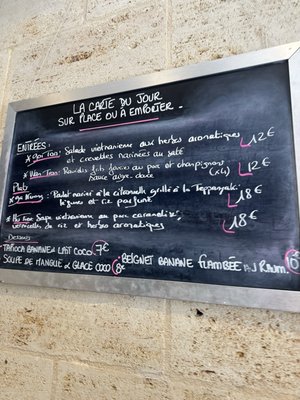 LA CARTE DU JOUR
SUR PLACE OU À EMPORTER.
ENTRÉES :
Salade vietnamienne aux herbes aromatiques
et crevettes marinées au saté
12€
Raviolis frits farcis au porc et champignons
sauce aigre douce (x4)
12€
Plats
Poulet mariné à la citronnelle grillé à la Teppanyaki,
légumes et riz parfumé
18€
Soupe vietnamienne au porc caramélisé,
vermicelles de riz et herbes aromatiques
18€
Desserts
TAPIOCA BANANE & LAIT COCO 7€
SOUPE DE MANGUE & GLACE COCO 8€
BEIGNET BANANE FLAMBÉE AU RHUM